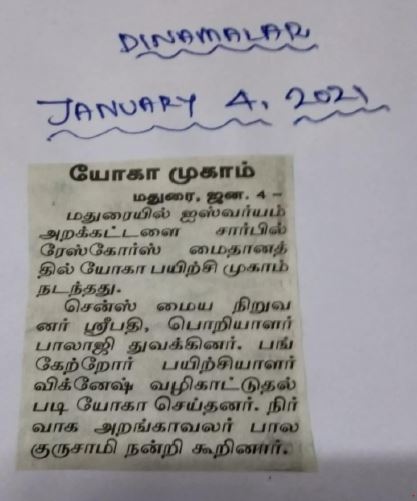 DINAMALAR
JANUARY 4, 2021
யோகா முகாம்
மதுரை, ஜன. 4 –
மதுரையில் ஐஸ்வர்யம்
அறக்கட்டளை சார்பில்
ரேஸ்கோர்ஸ் மைதானத்
தில் யோகா பயிற்சி முகாம்
நடந்தது.
சென்ஸ் மைய நிறுவ
னர் ஸ்ரீபதி, பொறியாளர்
பாலாஜி துவக்கினர். பங்
கேற்றோர் பயிற்சியாளர்
விக்னேஷ் வழிகாட்டுதல்
படி யோகா செய்தனர். நிர்
வாக அறங்காவலர் பால
குருசாமி நன்றி கூறினார்.